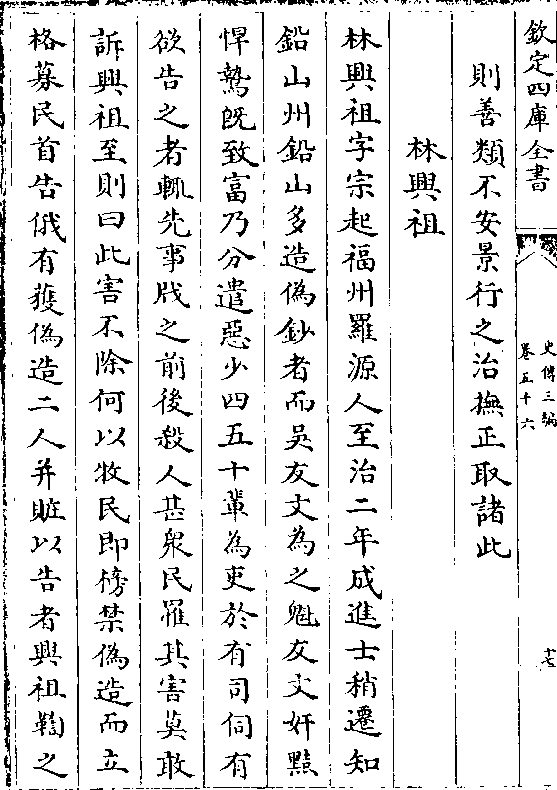 欽定四庫全書
史傳三編
卷五十六
十七
則善類不安景行之治撫正取諸此
林興祖
林興祖字宗起福州羅源人至治二年成進士稍遷知
鉛山州鉛山多造偽鈔者而吳友文為之魁友文奸黠
悍鷙既致富乃分遣惡少四五十輩為吏於有司伺有
欲告之者輒先事戕之前後殺人甚衆民罹其害莫敢
訴興祖至則曰此害不除何以牧民即榜禁偽造而立
格募民首告俄有獲偽造二人并贓以告者興祖鞫之